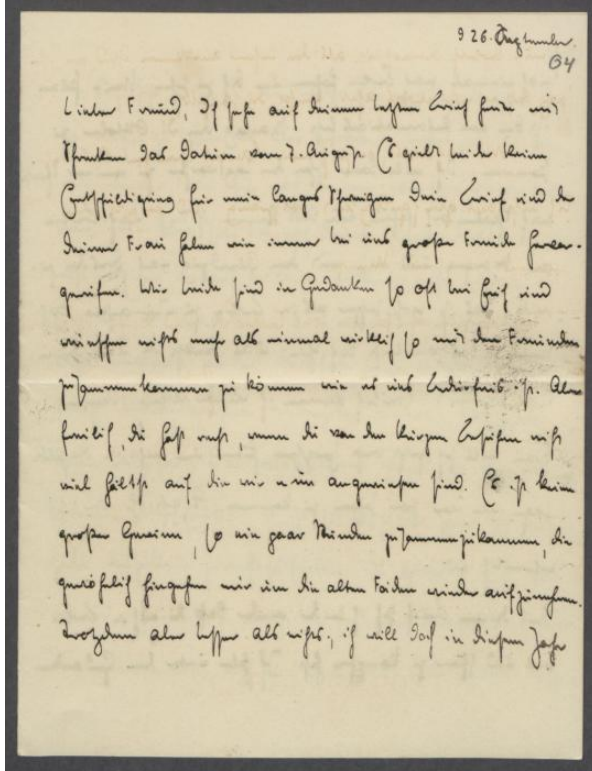 926. September.
04
Lieber Freund, Ich sehe auf deinem letzten Brief heute mit
Schrecken das Datum vom 7. August. Es giebt leider keine
Entschuldigung für mein langes Schweigen Dein Brief und der
deiner Frau haben wie immer bei uns große Freude hervor-
gerufen. Wir beide sind in Gedanken so oft bei Euch und
wünschen nichts mehr als einmal wirklich so mit den Freunden
zusammenkommen zu können wie es uns Bedürfnis ist. Aber
freilich, du hast recht, wenn du von den kurzen Besuchen nicht
viel hältst auf die wir nun angewiesen sind. Es ist kein
großer Gewinn, so ein paar Stunden zusammenzukommen, die
gewöhnlich hingehen nur um die alten Fäden wieder aufzunehmen.
Trotzdem aber besser als nichts, ich will doch in diesem Jahr